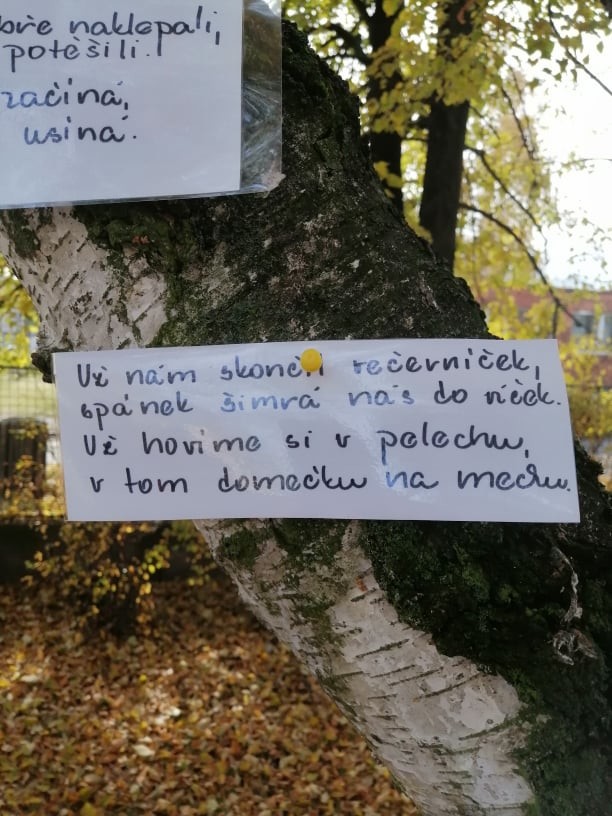 bře naklepali,
potěšili.
začíná,
usíná.
Už nám skončil večerníček,
spánek šimrá nás do víček.
Už hovíme si v pelechu,
v tom domečku na mechu.